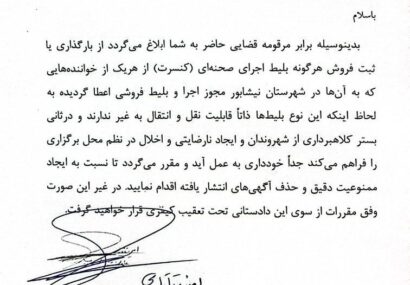 باسلام
بدینوسیله برابر مرقومه قضایی حاضر به شما ابلاغ می‌گردد از بارگذاری یا
ثبت فروش هرگونه بلیط اجرای صحنه‌ای (کنسرت) از هریک از خواننده‌هایی
که به آن‌ها در شهرستان نیشابور مجوز اجرا و بلیط فروشی اعطا گردیده به
لحاظ اینکه این نوع بلیط‌ها ذاتاً قابلیت نقل و انتقال به غیر ندارند و درثانی
بستر کلاهبرداری از شهروندان و ایجاد نارضایتی و اخلال در نظم محل برگزاری
را فراهم می‌کند جداً خودداری به عمل آید و مقرر می‌گردد تا نسبت به ایجاد
ممنوعیت دقیق و حذف آگهی‌های انتشار یافته اقدام نمایید. در غیر این صورت
وفق مقررات از سوی این دادستانی تحت تعقیب کیفری قرار خواهید گرفت.